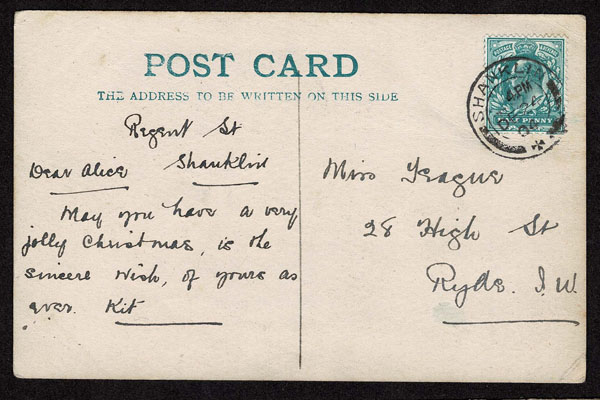 POST CARD
THE ADDRESS TO BE WRITTEN ON THIS SIDE
POSTAGE
HALF PENNY
SHANKLIN
4 PM
04
Regent St
Shanklin
Dear Alice
May you have a very
jolly Christmas, is the
sincere wish, of yours as
ever. Kit
Miss Teague
28 High St
Ryde. I.W